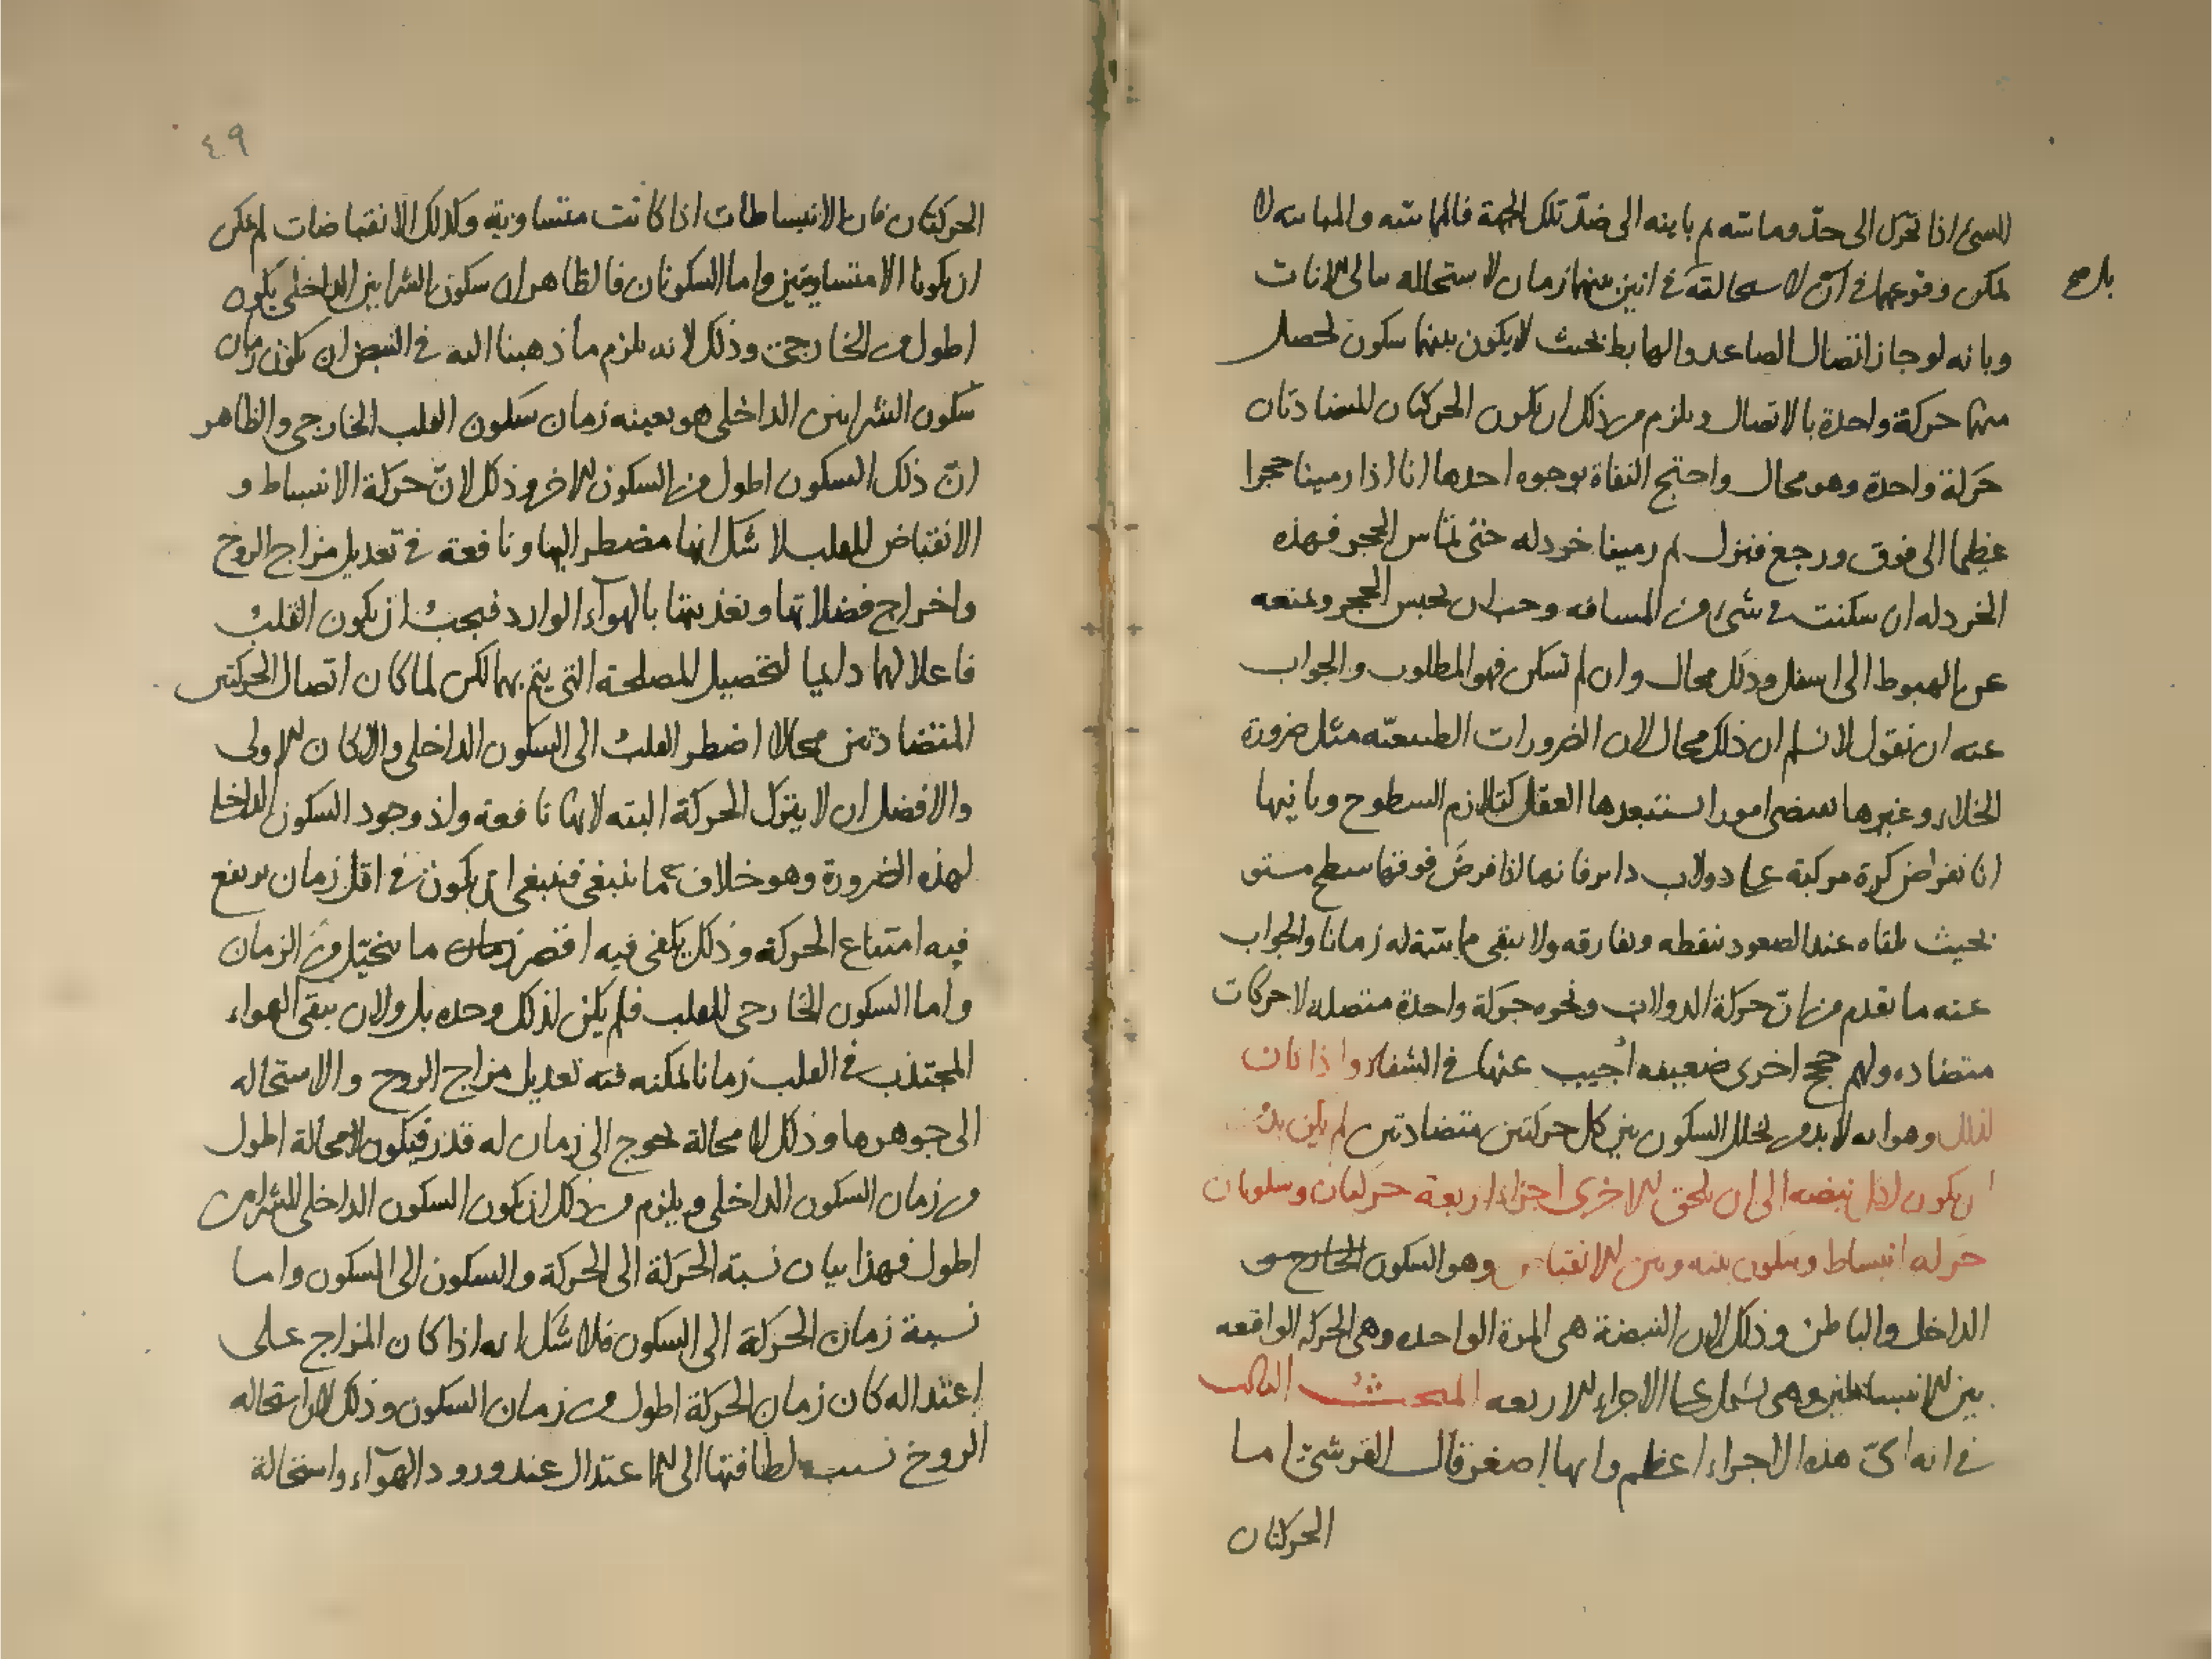 للشئ اذا تحرك الى حد وماسه ثم باينه الى ضد تلك الجهة فالمماسه والمباينه لا
يمكن وقوعهما فى آن لاستحالته فى انين بينهما زمان لاستحاله تتالى الانات
بلغ
وبانه لو جاز اتصال الصاعد والهابط بحيث لا يكون بينهما سكون لحصل
منهما حركة واحدة بالاتصال ويلزم من ذلك ان يكون الحركتان المتضادتان
حركة واحدة وهو محال واحتج النفاة بوجوه احدها انا اذا رمينا حجرا
عظيما الى فوق ورجع فنزل ثم رمينا خردله حتى تماس الحجر فهذه
الخردله ان سكنت فى شئ من المسافه وجب ان يحبس الحجر وتمنعه
عن الهبوط الى اسفل وذلك محال وان لم تسكن فهو المطلوب والجواب
عنه ان نقول لا نسلم ان ذلك محال لان الضرورات الطبيعيه مثل ضرورة
الخلاء وغيرها تقتضى امورا استبعدها العقل كتلازم السطوح وثانيها
انا نفرض كرة مركبة على دولاب دائر فانها اذا فرض فوقها سطح مستو
بحيث تلقاه عند الصعود بنقطه وتفارقه ولا تبقى مماسة له زمانا والجواب
عنه ما تقدم من ان حركة الدولاب ونحوه حركة واحدة متصله لا حركات
متضاده ولهم حجج اخرى ضعيفه اجيب عنها فى الشفاء واذا كان
كذلك وهو انه لا بد من تخلل السكون بين كل حركتين متضادتين لم يكن بد
ان يكون لكل نبضه الى ان يلحق الاخرى اجزاء اربعة حركتان وسكونان
حركه انبساط وسكون بينه وبين الانقباض وهو السكون الخارج و
الداخل والباطن وذلك لان النبضة هى المرة الواحده وهى الحركة الواقعه
بين الانبساطين وهى تشمل على الاجزاء الاربعه المبحث الثالث
فى انه اى هذه الاجزاء اعظم وايها اصغر قال القرشى اما
الحركتان
٤٩
الحركتان فان الانبساطات اذا كانت متساوية وكذلك الانقباضات لم يمكن
ان يكونا الا متساويتين واما السكونان فالظاهر ان سكون الشرايين الداخلى يكون
اطول من الخارجى وذلك لانه يلزم ما ذهبنا اليه فى النبض ان يكون زمان
سكون الشرايين الداخلى هو بعينه زمان سكون القلب الخارجى والظاهر
ان ذلك السكون اطول من السكون الاخر وذلك لان حركة الانبساط و
الانقباض للقلب لا شك انها مضطر اليها ونافعة فى تعديل مزاج الروح
واخراج فضلاتها وتغذيتها بالهوآء الوارد فيجب ان يكون القلب
فاعلا لهما دائما لتحصيل المصلحة التى يتم بهما لكن لما كان اتصال الحركتين
المتضادتين محالا اضطر القلب الى السكون الداخلى والا كان الاولى
والافضل ان لا يترك الحركة البته لانها نافعة واذ وجود السكون الداخل
لهذه الضرورة وهو خلاف عما ينبغى فينبغى ان يكون فى اقل زمان يرتفع
فيه امتناع الحركة وذلك يكفى فيه اقصر زمان ما يتخيل من الزمان
واما السكون الخارجى للقلب فلم يكن لذلك وحده بل ولان يبقى الهواء
المجتذب فى القلب زمانا يمكنه فيه تعديل مزاج الروح والاستحاله
الى جوهرها وذلك لا محالة يحوج الى زمان له قدر فيكون لا محالة اطول
من زمان السكون الداخلى ويلزم من ذلك ان يكون السكون الداخلى للشرايين
اطول فهذا بيان نسبة الحركة الى الحركة والسكون الى السكون واما
نسبة زمان الحركة الى السكون فلا شك انه اذا كان المزاج على
اعتداله كان زمان الحركة اطول من زمان السكون وذلك لان استحاله
الروح بسبب لطافتها الى الاعتدال عند ورود الهوآء واستحالة